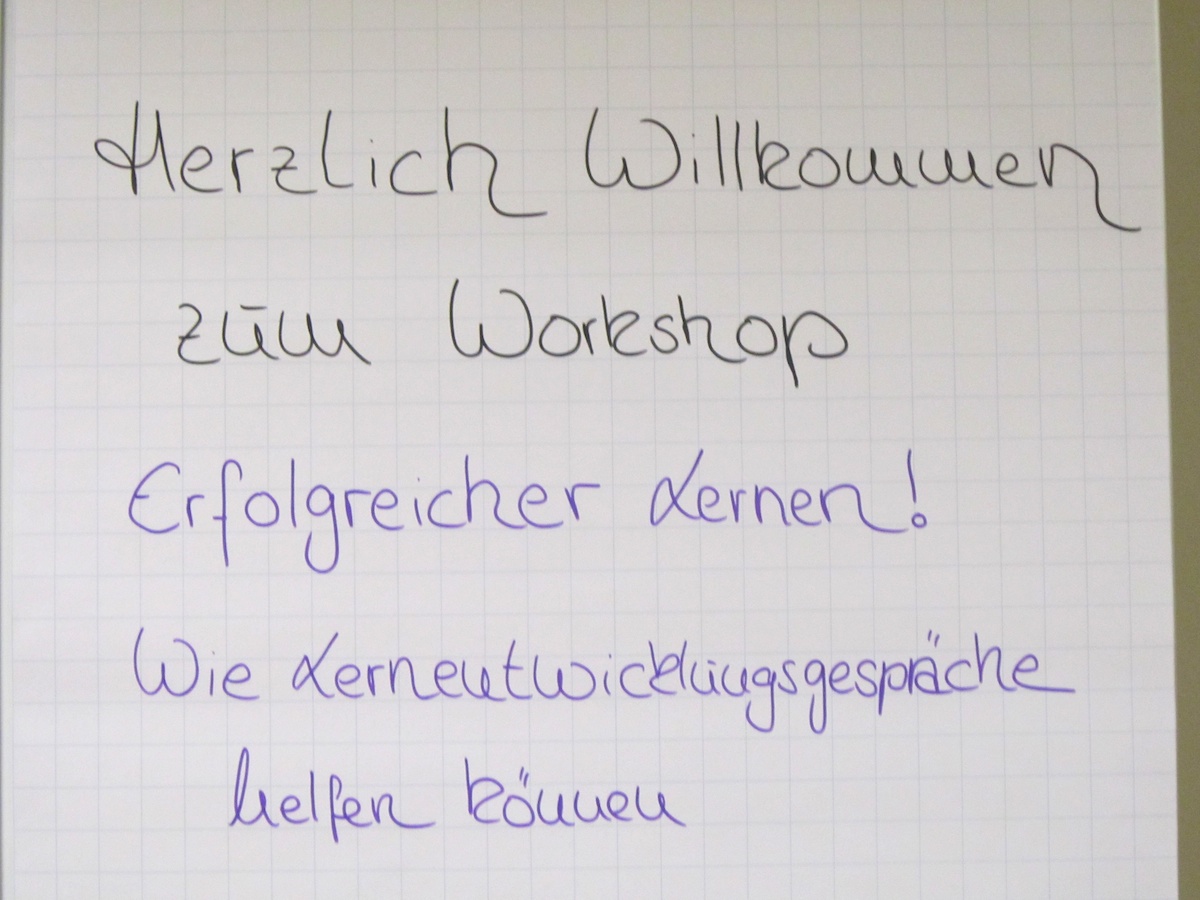 Herzlich Willkommen
zum Workshop
Erfolgreicher Lernen!
Wie Lernentwicklungsgespräche
helfen können